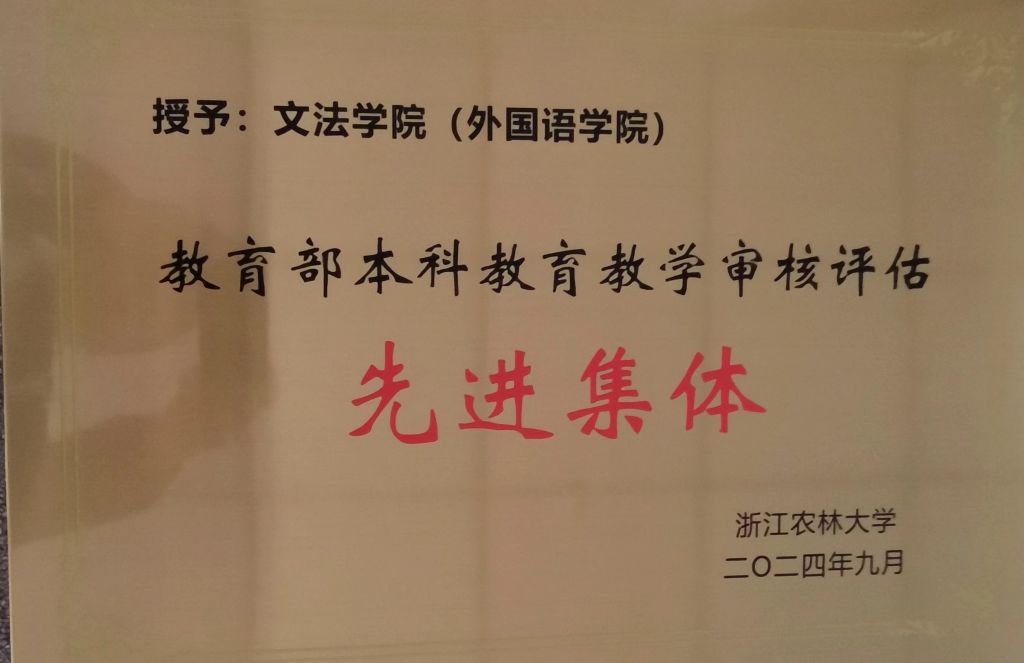 授予：文法学院（外国语学院）
教育部本科教育教学审核评估
先进集体
浙江农林大学
二〇二四年九月